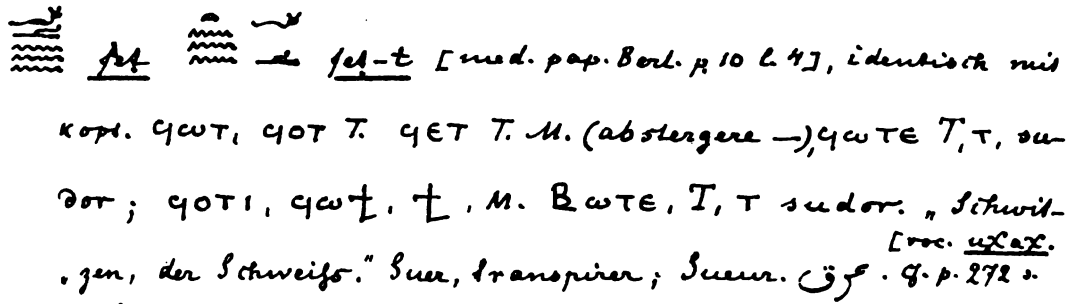 fet fet-t [med. pap. Berl. p. 10 l. 4], identisch mit
kopt. ϥⲱⲧ, ϥⲟⲧ T. ϥⲉⲧ T. M. (abstergere —), ϥⲱⲧⲉ T, ⲧ, su-
dor; ϥⲟⲧⲓ, ϥⲱϯ, ϯ, M. Ⲃⲱⲧⲉ, T, ⲧ sudor. „Schwit-
[voc.
„zen, der Schweifs." Suer, transpirer; Sueur. عرق. q. p. 272 s.